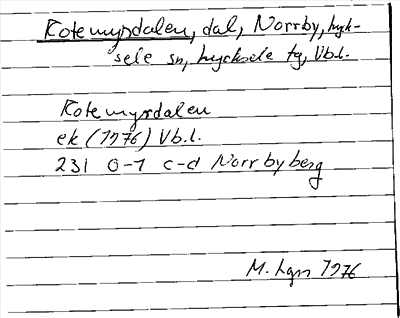 Kotemyrdalen, dal, Norrby, lyck-
sele sn, lycksele tg, Vb.l.
Kotemyrdalen
ek (1976) Vb.l.
231 0-1 c-d Norrbyberg
M. Lgn 1976